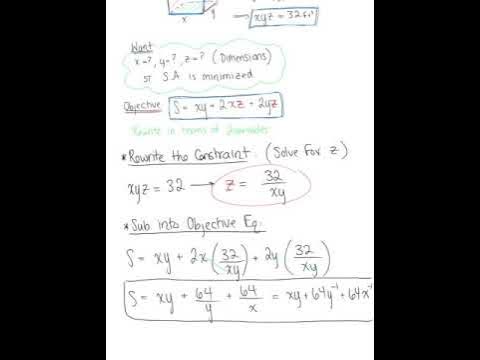 x y
→ xyz = 32 ft³
Want
x=?, y=?, z=? (Dimensions)
st S.A is minimized
Objective S = xy + 2xz + 2yz
Rewrite in terms of 2 variables
* Rewrite the Constraint: (Solve for z)
xyz = 32 → z = 32/xy
* Sub into Objective Eq:
S = xy + 2x (32/xy) + 2y (32/xy)
S = xy + 64/y + 64/x = xy + 64y⁻¹ + 64x⁻¹